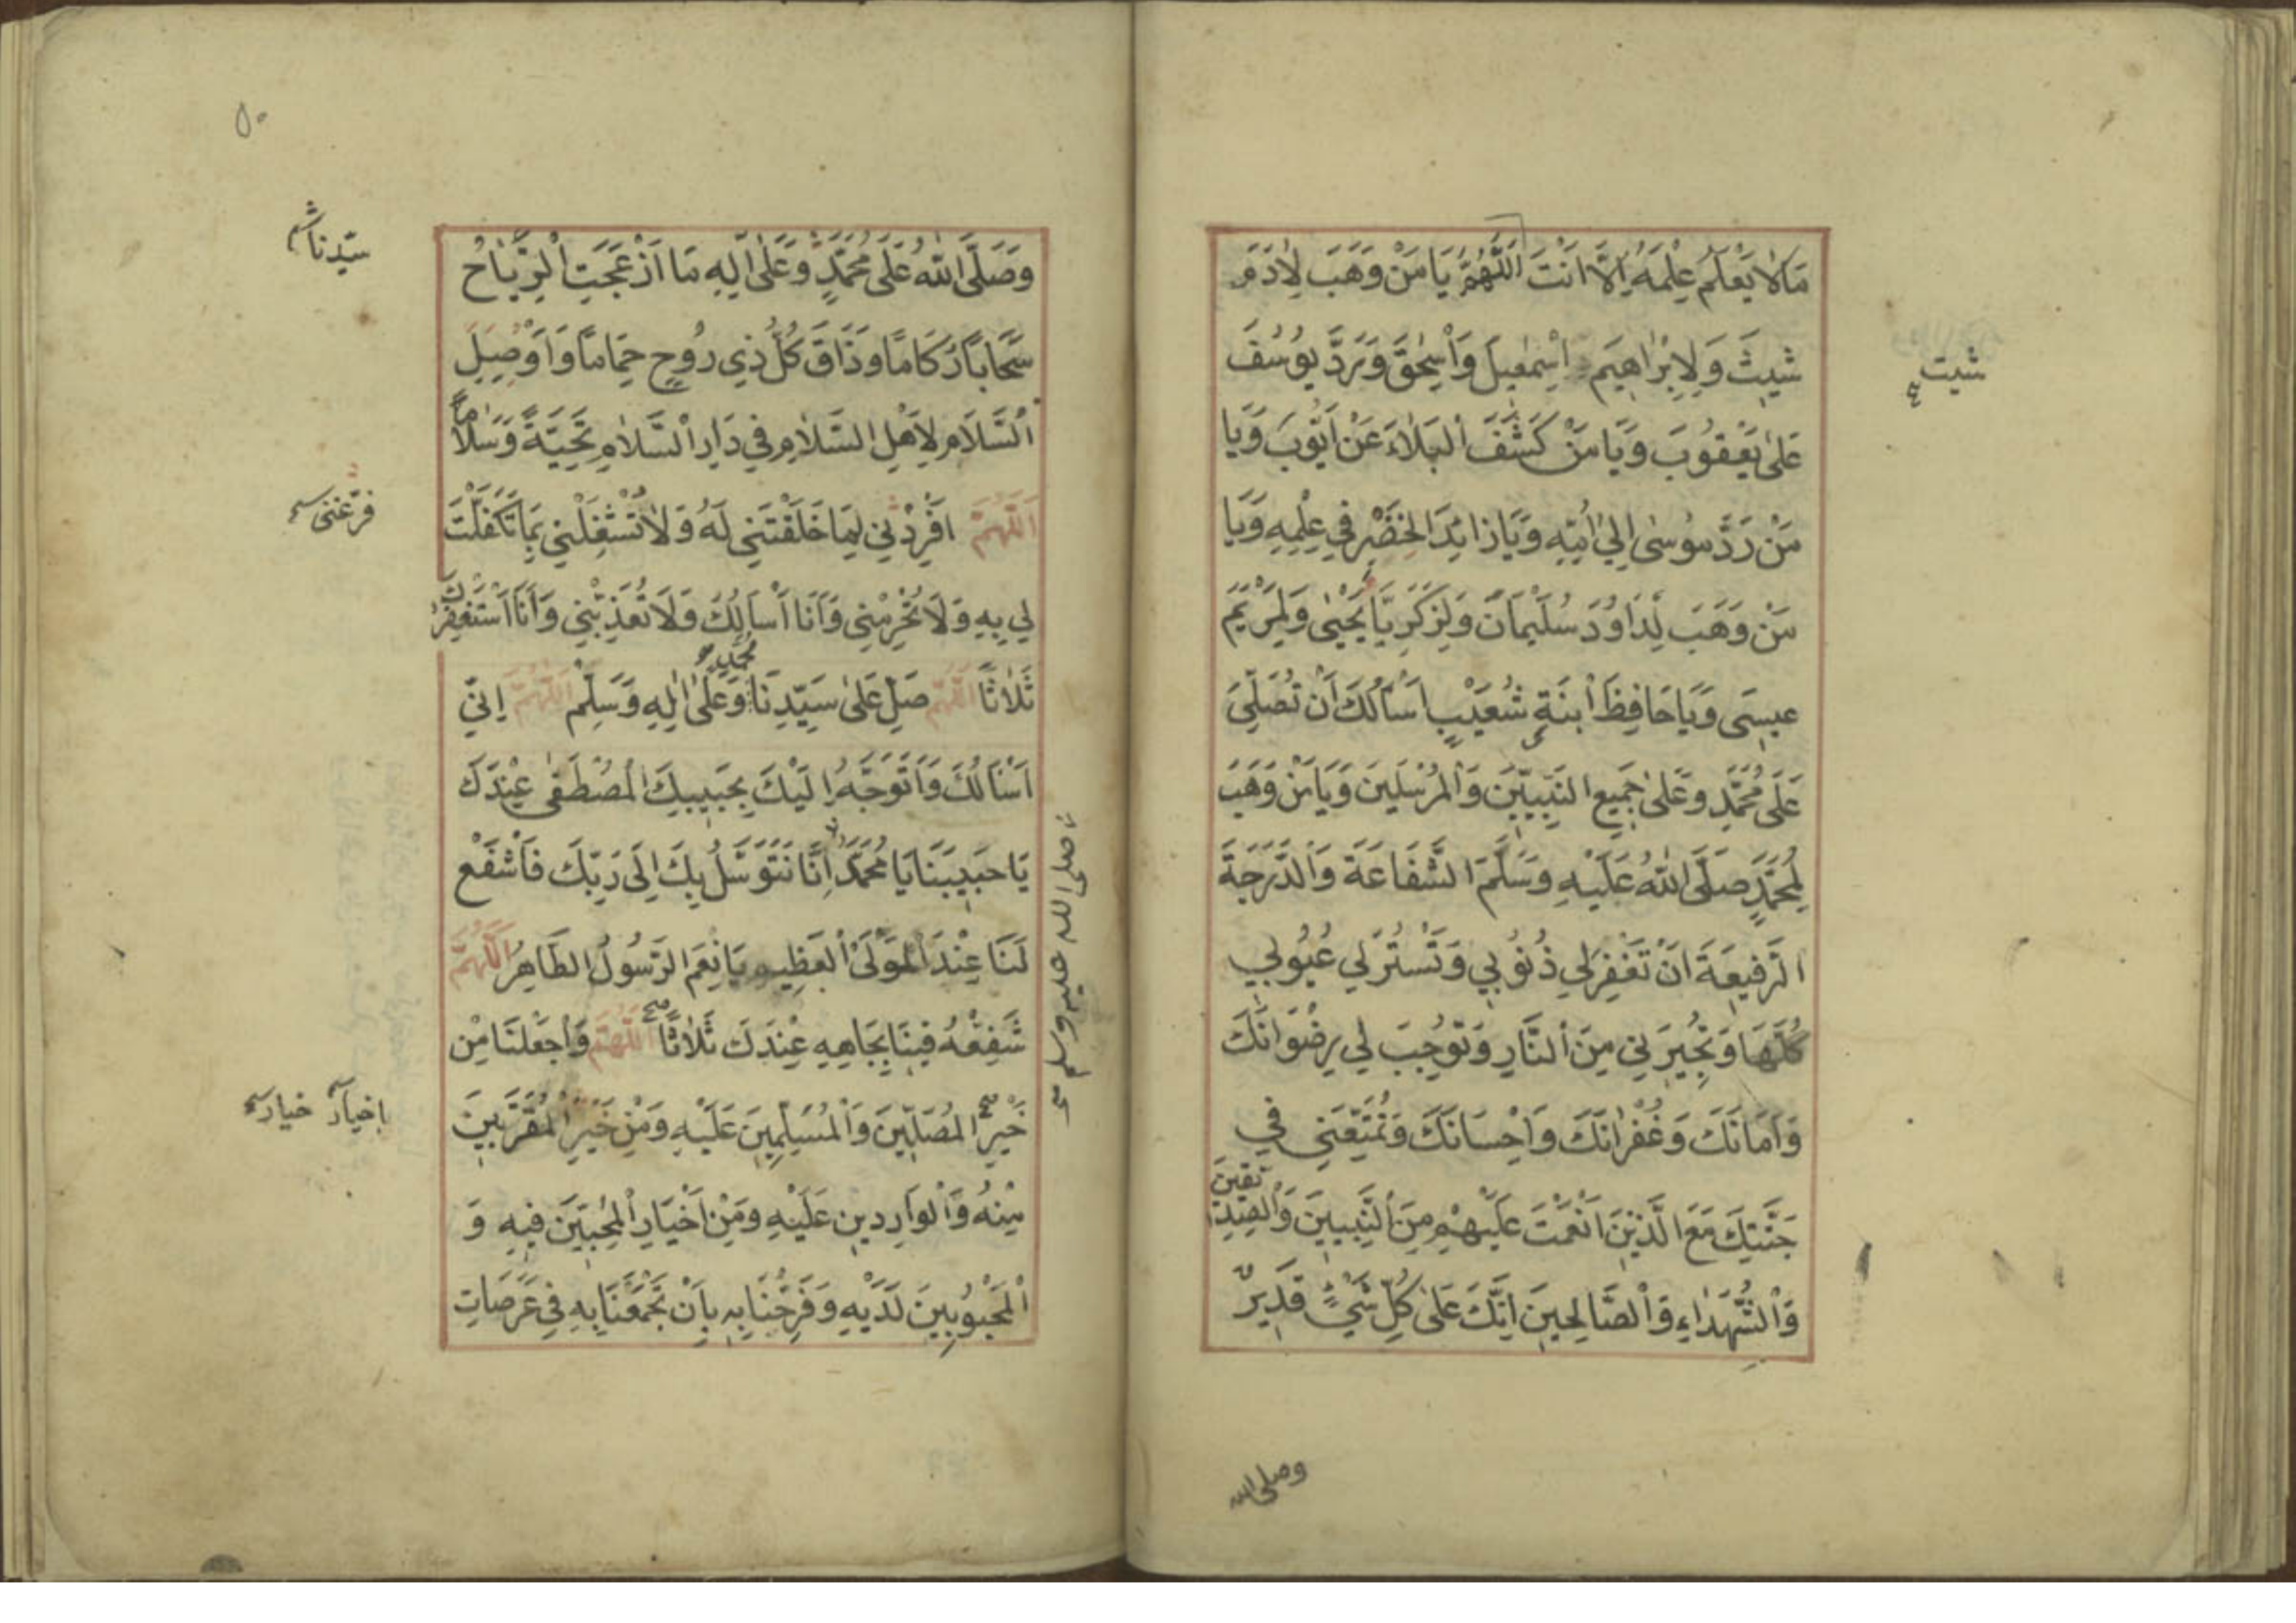 مَا لَا يَعْلَمُ عِلْمَهُ اِلَّا اَنْتَ اَللّٰهُمَّ يَا مَنْ وَهَبَ لِاٰدَمَ
شيثَ وَلِاِبْرَاهِيمَ اِسْمٰعِيلَ وَاِسْحٰقَ وَرَدَّ يُوسُفَ
شيت
عَلٰى يَعْقُوبَ وَيَا مَنْ كَشَفَ الْبَلَاءَ عَنْ اَيُّوبَ وَيَا
مَنْ رَدَّ مُوسٰى اِلٰى اُمِّهِ وَيَا زَائِدَ الْخَضْرِ فِي عِلْمِهِ وَيَا
مَنْ وَهَبَ لِدَاوُدَ سُلَيْمَانَ وَلِزَكَرِيَّا يَحْيٰى وَلِمَرْيَمَ
عِيسَى وَيَا حَافِظَ ابْنَةِ شُعَيْبٍ اَسْاَلُكَ اَنْ تُصَلِّيَ
عَلَى مُحَمَّدٍ وَعَلٰى جَمِيعِ النَّبِيِّينَ وَالْمُرْسَلِينَ وَيَا مَنْ وَهَبَ
لِمُحَمَّدٍ صَلَّى اللهُ عَلَيْهِ وَسَلَّمَ الشَّفَاعَةَ وَالدَّرَجَةَ
الرَّفِيعَةَ اَنْ تَغْفِرَ لِي ذُنُوبِي وَتَسْتُرَ لِي عُيُوبِي
كُلَّهَا وَتُجِيرَنِي مِنَ النَّارِ وَتُوجِبَ لِي رِضْوَانَكَ
وَاَمَانَكَ وَغُفْرَانَكَ وَاِحْسَانَكَ وَتُمَتِّعَنِي فِي
جَنَّتِكَ مَعَ الَّذِينَ اَنْعَمْتَ عَلَيْهِمْ مِنَ النَّبِيِّينَ وَالصِّدِّيقِينَ
وَالشُّهَدَاءِ وَالصَّالِحِينَ اِنَّكَ عَلٰى كُلِّ شَيْءٍ قَدِيرٌ
وصلى الله
٥٠
وَصَلَّى اللهُ عَلَى مُحَمَّدٍ وَعَلٰى اٰلِهِ مَا اَزْعَجَتِ الرِّيَاحُ
سيدنا
سَحَابًا رُكَامًا وَذَاقَ كُلُّ ذِي رُوحٍ حِمَامًا وَاَوْصِلِ
السَّلَامَ لِاَهْلِ السَّلَامِ فِي دَارِ السَّلَامِ تَحِيَّةً وَسَلَامًا
اَللّٰهُمَّ اَفْرِدْنِي لِمَا خَلَقْتَنِي لَهُ وَلَا تُشْغِلْنِي بِمَا تَكَفَّلْتَ
فرغنى
لِي بِهِ وَلَا تَحْرِمْنِي وَاَنَا اَسْاَلُكَ وَلَا تُعَذِّبْنِي وَاَنَا اَسْتَغْفِرُكَ
ثَلَاثًا اَللّٰهُمَّ صَلِّ عَلٰى سَيِّدِنَا مُحَمَّدٍ وَعَلٰى اٰلِهِ وَسَلِّمْ اَللّٰهُمَّ اِنِّي
اَسْاَلُكَ وَاَتَوَجَّهُ اِلَيْكَ بِحَبِيبِكَ الْمُصْطَفٰى عِنْدَكَ
يَا حَبِيبَنَا يَا مُحَمَّدُ اِنَّا نَتَوَسَّلُ بِكَ اِلٰى رَبِّكَ فَاشْفَعْ
صلى الله عليه وسلم
لَنَا عِنْدَ الْمَوْلَى الْعَظِيمِ يَا نِعْمَ الرَّسُولُ الطَّاهِرُ اَللّٰهُمَّ
شَفِّعْهُ فِينَا بِجَاهِهِ عِنْدَكَ ثَلَاثًا اَللّٰهُمَّ وَاجْعَلْنَا مِنْ
خَيْرِ الْمُصَلِّينَ وَالْمُسَلِّمِينَ عَلَيْهِ وَمِنْ خَيْرِ الْمُقَرَّبِينَ
اخيار خيار
مِنْهُ وَالْوَارِدِينَ عَلَيْهِ وَمِنْ اَخْيَارِ الْمُحِبِّينَ فِيهِ وَ
الْمَحْبُوبِينَ لَدَيْهِ وَفَرِّحْنَا بِهِ بِاَنْ تَجْمَعَنَا بِهِ فِي عَرَصَاتِ